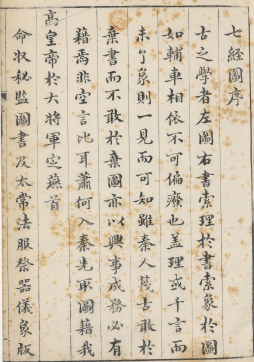 七經圖序
古之學者左圖右書索理於書索象於圖
如輔車相依不可偏癈也盖理或千言而
未了象則一見而可知雖秦人蔑古敢於
棄書而不敢於棄圖亦以興事成務必有
藉焉非空言比耳蕭何入秦先収圖籍我
髙皇帝於大將軍定燕首
命収秘監圖書及太常法服祭噐儀象版